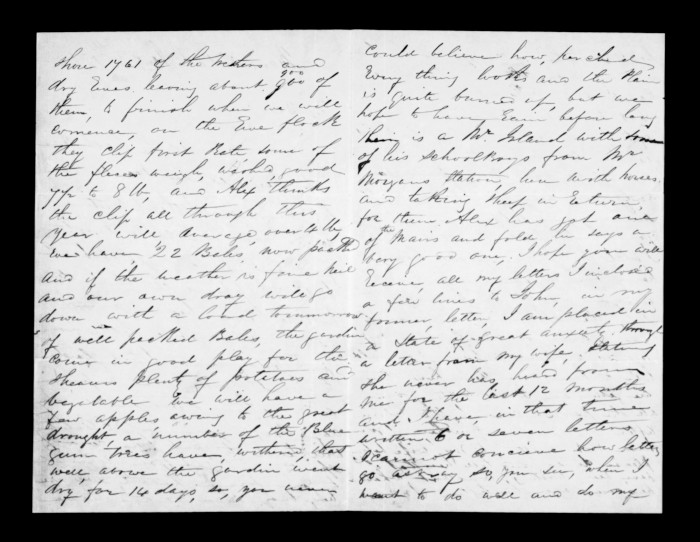 Shore 1761 of the Wethers and
dry Ewes, leaving about 900 of
them, to finish when we will
comence, on the Ewe flock
they clip first Rate, some of
the fleeces weigh, washed, good
7½ to 8 lb, and Alex thinks
the clip all through this
year will average over 4 lb
we have 22 Bales, now packed
and if the weather is fine Neil
and our own dray will go
down with a load tomorrow
of well packed Bales, the garden
comes in good play for the
Shearers plenty of potatoes and
vegetable we will have a
few apples owing to the great
drought, a number of the Blue
gum trees have, withered, that
well above the garden went
dry, for 14 days, so, you never
could believe how, parched
Every thing looks and the Plain
is quite burned up, but we
hope to have Rain before long
their is a Mr Island with some
of his Schoolboys from Mr
Morgans station, here with horses
and taking Sheep in Return,
for them Alex has got one
of the Mairs and fold, he says a
very good one, I hope you will
Receive, all my letters I inclosed
a few lines to John, in my
former letter, I am placed in
a State of great anxiety through
a letter from my wife,
She never was, heard from
me for the last 12 months
and I have, in that time
written 6 or seven letters
I cannot concieve how letters
go astray so, you see, when I
want to do well and do my